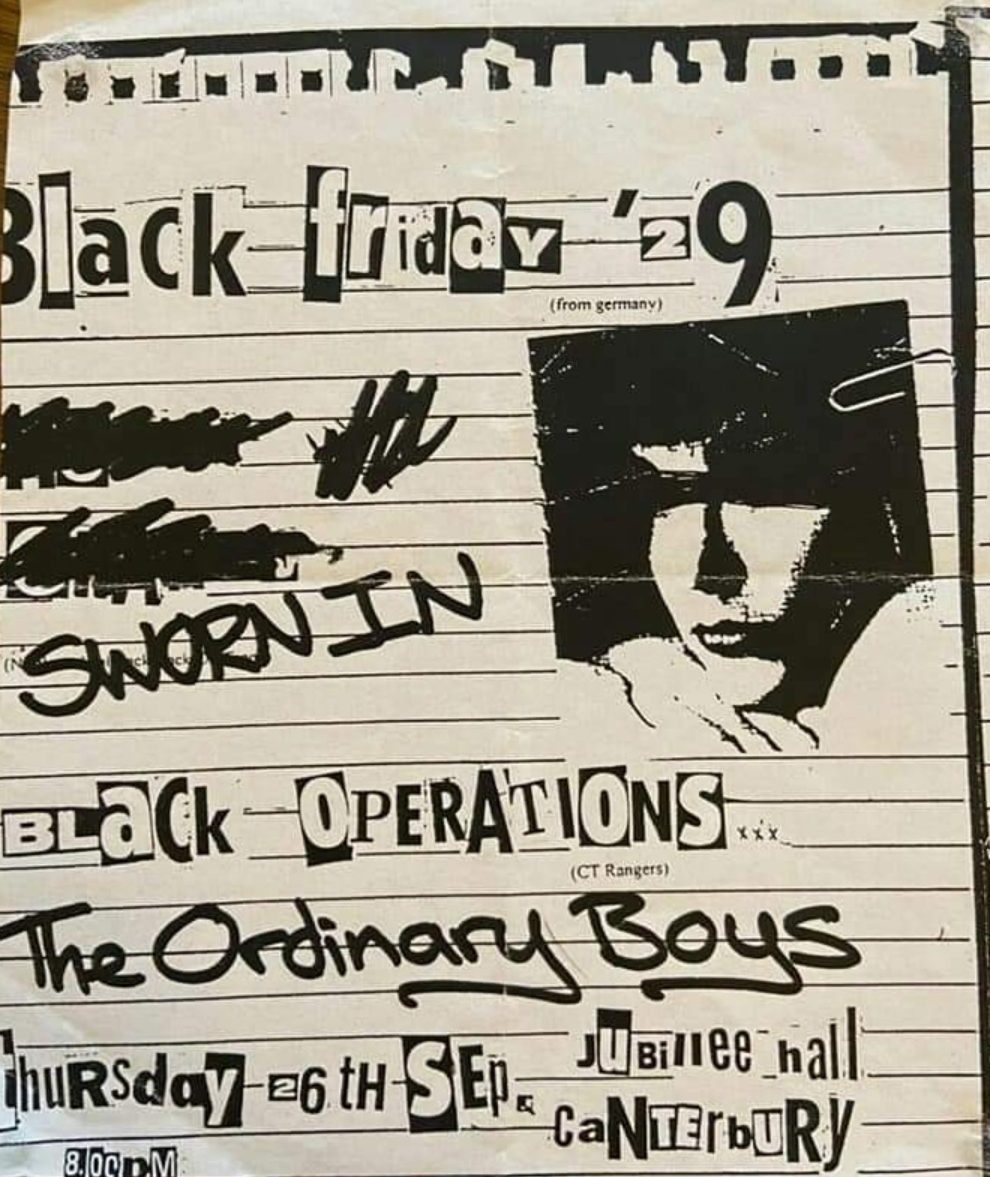 Black friday '29
(from germany)
SWORN IN
BLaCk OPERATIONS...xxx...
(CT Rangers)
The Ordinary Boys
ThuRSday 26tH SEp.
JUBillee hall
caNTErbURy
8.00pM